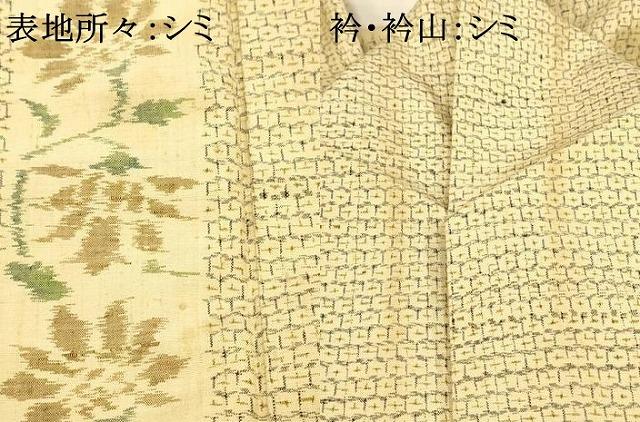 表地所々:シミ
衿・衿山:シミ